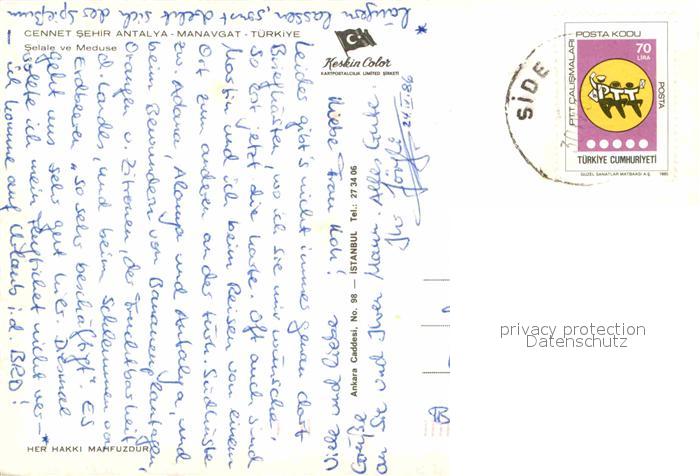 CENNET ŞEHİR ANTALYA - MANAVGAT - TÜRKİYE
Şelale ve Meduse
Keskin Color
KARTPOSTALCILIK LİMİTED ŞİRKETİ
Ankara Caddesi, No. 98 — İSTANBUL Tel.: 27 34 06
HER HAKKI MAHFUZDUR
POSTA KODU
70
LİRA
PTT ÇALIŞMALARI
POSTA
PTT
TÜRKİYE CUMHURİYETİ
GÜZEL SANATLAR MATBAASI A.Ş. 1985
SİDE
Liebe Frau
Leider gibt's nicht immer genau dort
Briefkästen, wo ich sie mir wünsche,
so erst jetzt die Karte. Oft auch sind
Martin und ich beim Reisen von einem
Ort zum anderen an der türk. Südküste
zw. Adana, Alanya und Antalya, und
beim Bewundern von Bananenplantagen,
Orangen u. Zitronen, der Fruchtbarkeit
d. Landes, und beim Schlemmen von
Erdbeeren "so sehr beschäftigt". Es
geht uns sehr gut hier. Diesmal
sollte ich mein Flugticket nicht ver-*
- ich komme auf Urlaub i.d. BRD!
* längern lassen, sonst dehnt sich der Spießum
Viele und liebe
Grüße
an Sie und Ihren Mann. Alles Gute.
Ihr
privacy protection
Datenschutz